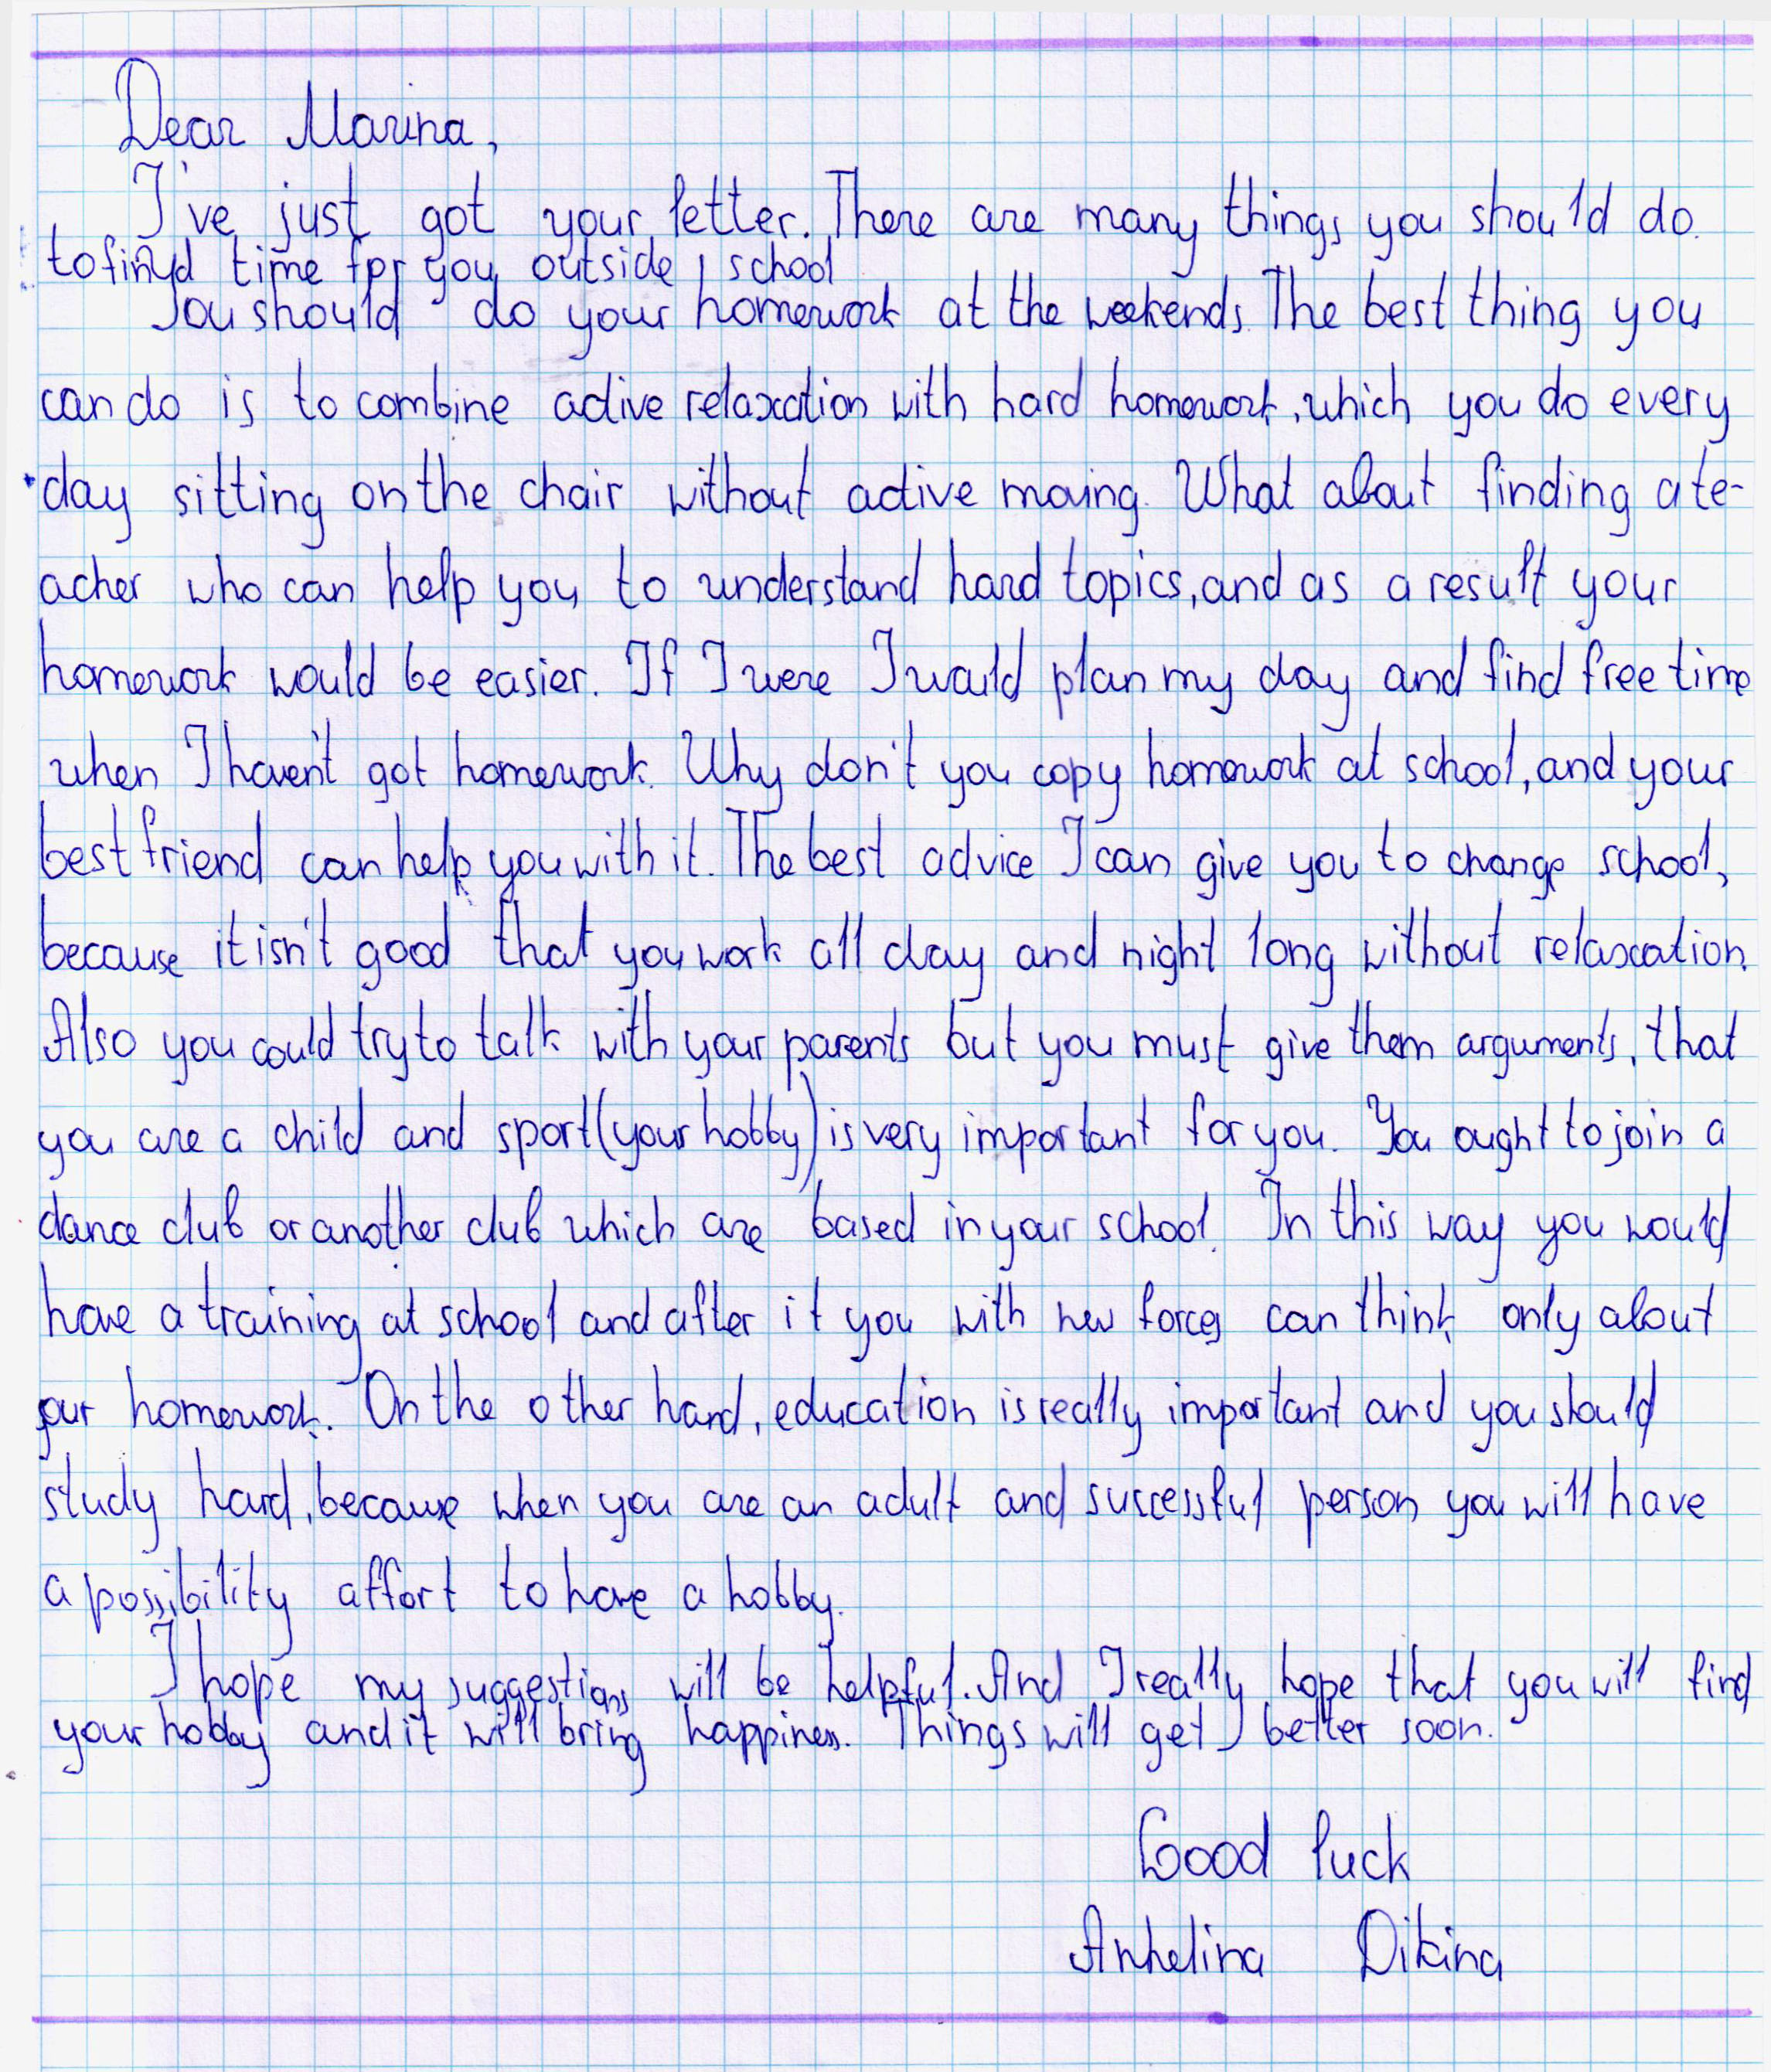 Dear Marina,
I've just got your letter. There are many things you should do
to find time for you outside school
You should do your homework at the weekends. The best thing you
can do is to combine active relaxation with hard homework, which you do every
day sitting on the chair without active moving. What about finding a te-
acher who can help you to understand hard topics, and as a result your
homework would be easier. If I were I would plan my day and find free time
when I haven't got homework. Why don't you copy homework at school, and your
best friend can help you with it. The best advice I can give you to change school,
because it isn't good that you work all day and night long without relaxation.
Also you could try to talk with your parents but you must give them arguments, that
you are a child and sport (your hobby) is very important for you. You ought to join a
dance club or another club which are based in your school. In this way you would
have a training at school and after it you with new forces can think only about
your homework. On the other hand, education is really important and you should
study hard, because when you are an adult and successful person you will have
a possibility affort to have a hobby.
I hope my suggestions will be helpful. And I really hope that you will find
your hobby and it will bring happiness. Things will get better soon.
Good luck
Anhelina Dikina